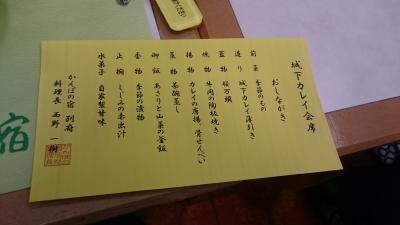 城下カレイ会席
おしながき
前菜 季節のもの
造り 城下カレイ薄引き
蓋物 桜万頭
焼物 牛肉の陶板焼き
揚物 カレイの唐揚、骨せんべい
蒸物 茶碗蒸し
御飯 あさりと山菜の釜飯
香物 季節の漬物
止椀 しじみの赤出汁
水菓子 自家製甘味
かんぽの宿 別府
料理長 西野 一樹
宿